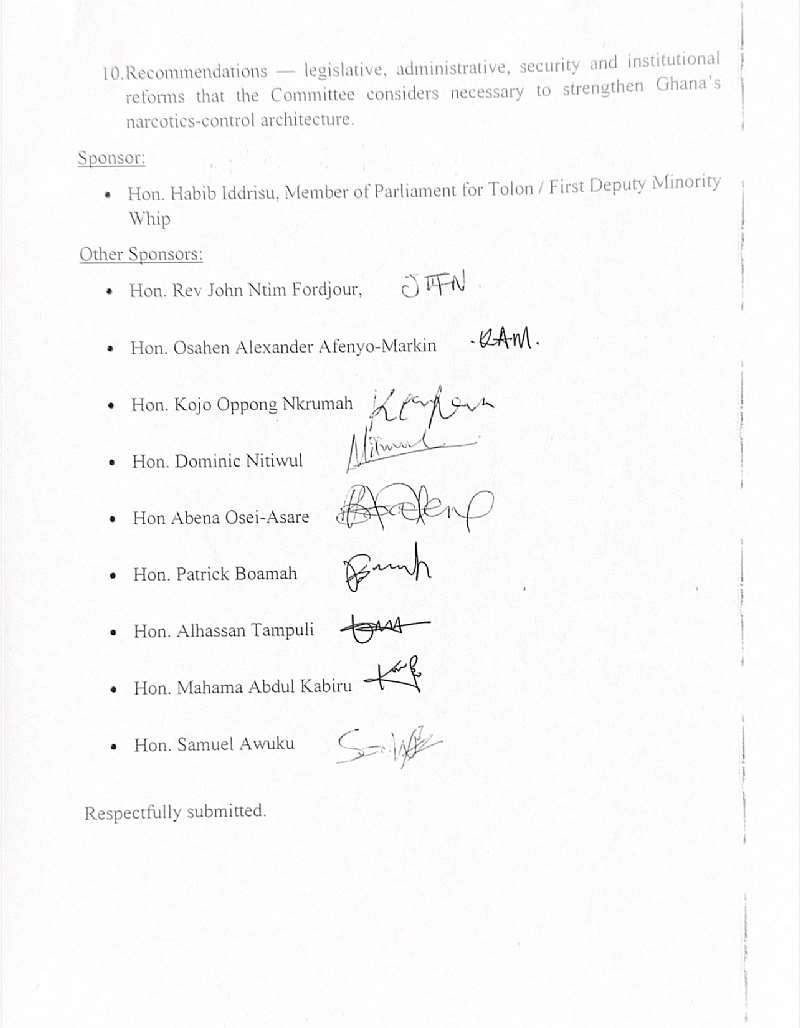 10.Recommendations — legislative, administrative, security and institutional
reforms that the Committee considers necessary to strengthen Ghana's
narcotics-control architecture.
Sponsor:
• Hon. Habib Iddrisu, Member of Parliament for Tolon / First Deputy Minority
Whip
Other Sponsors:
• Hon. Rev John Ntim Fordjour, JNFN
• Hon. Osahen Alexander Afenyo-Markin
• Hon. Kojo Oppong Nkrumah
• Hon. Dominic Nitiwul Nitiwul
• Hon Abena Osei-Asare
• Hon. Patrick Boamah
• Hon. Alhassan Tampuli
• Hon. Mahama Abdul Kabiru
• Hon. Samuel Awuku
Respectfully submitted.